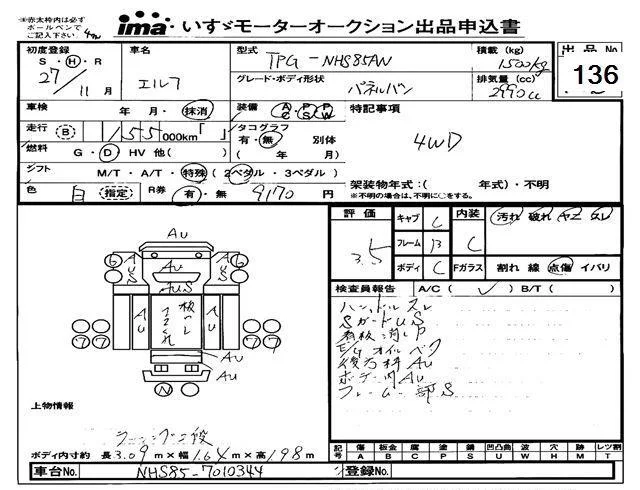 ※赤太枠内は必ず
ボールペンで
ご記入下さい。
ima いすゞモーターオークション出品申込書
初度登録 S・H・R 27/11月
車名 エルフ
型式 TPG-NHS85AN
グレード・ボディ形状 パネルバン
積載(kg) 1500kg
排気量(cc) 2990cc
出品No.
136
車検 年 月・抹消
装備 AC PS PW
特記事項
走行 B 155 000km「 」
タコグラフ 有・無 別体
( 年 月)
4WD
燃料 G・D HV 他( )
シフト M/T・A/T・特殊( 2ペダル・3ペダル )
架装物年式:( 年式)・不明
※不明の場合は、不明に○をする。
色 白 指定 R券 有・無 9170 円
評価 3.5
キャブ C
内装 C
汚れ・破れ・ヤニ・スレ
フレーム B
ボディ C
Fガラス 割れ 線 点傷 イバリ
検査員報告 A/C( ✓ ) B/T( )
ハンドルスレ
SガードUS
看板消しP
E/Gオイルベク
後方枠AU
ボデー内AU
フレーム一部S
AU
AU
AUS
AU
AU
AU
AU
AU
AU
N
上物情報
ラッシング二段
ボディ内寸約 長3.09m×幅1.64m×高1.98m
記号 傷 板金 腐 塗 錆 凹凸曲 波 穴 跡 レツ割
A B C P S U W H M T
車台No. NHS85-7010344
登録No.